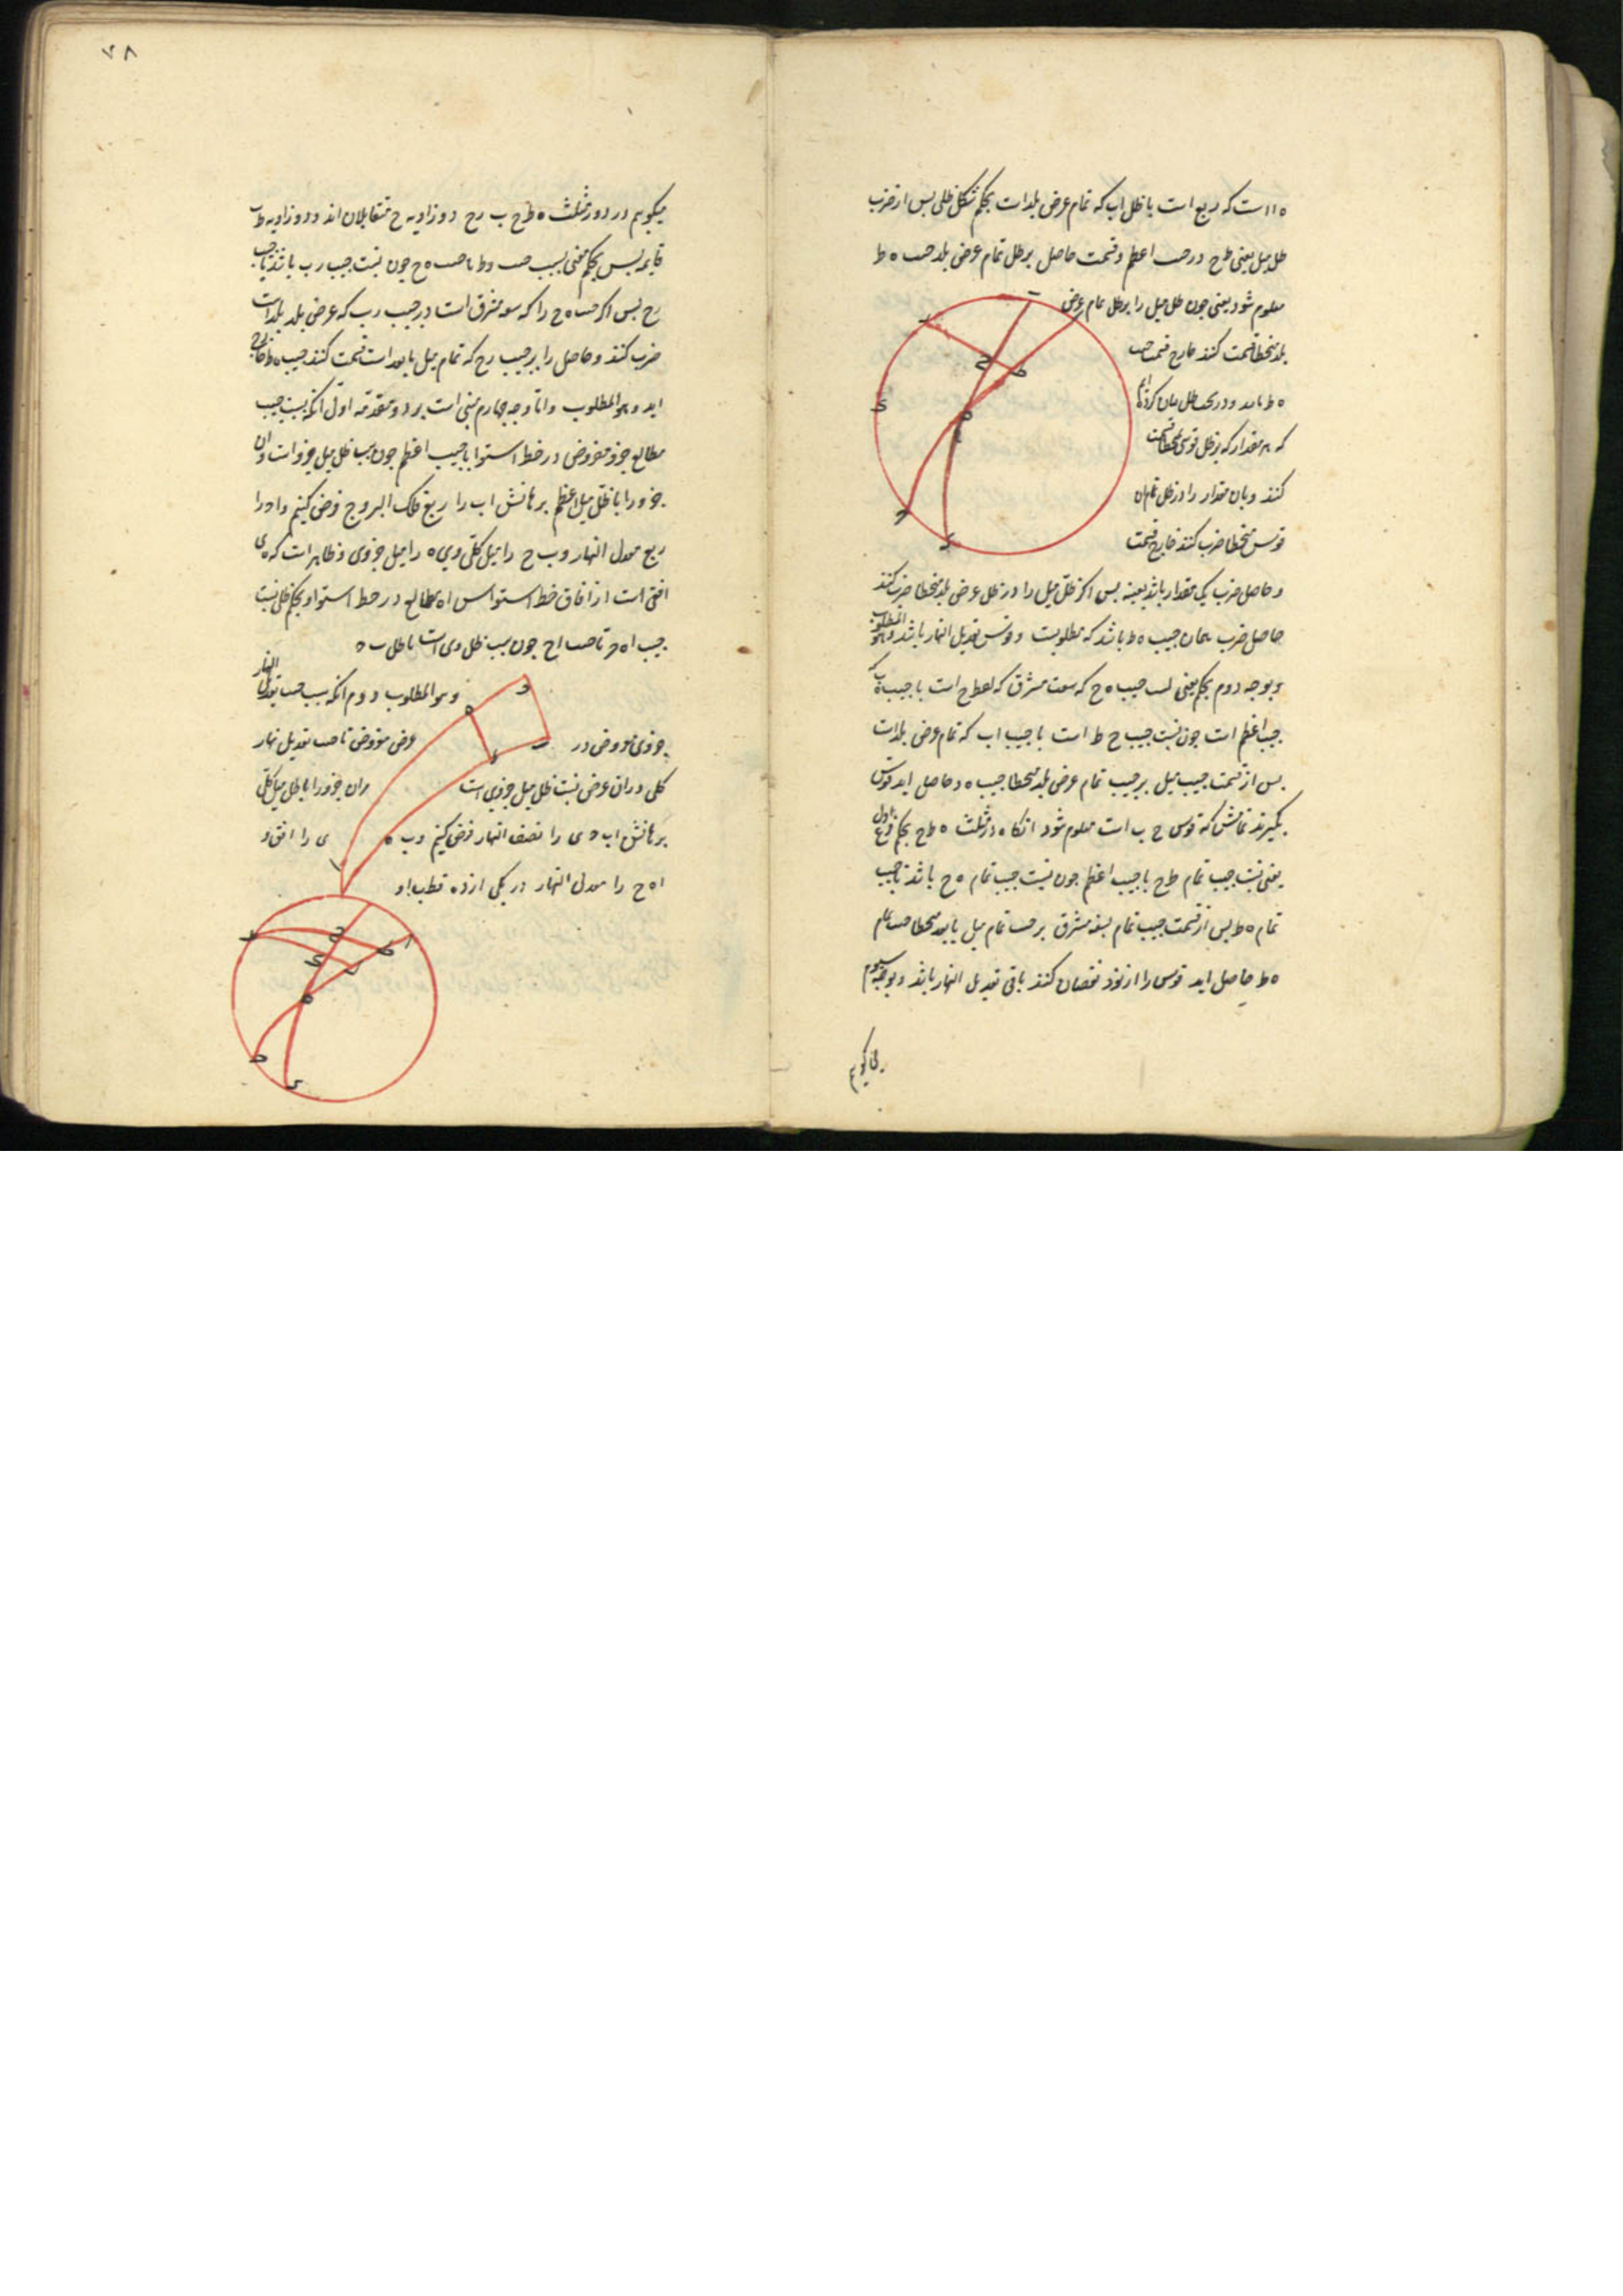 ه ا است که ربع است با ظل اب که تمام عرض بلد است بحکم شکل ظلی پس از ضرب
ظل میل یعنی طح در جیب اعظم و قسمت حاصل بر ظل تمام عرض بلد جیب ه ط
معلوم شود یعنی چون ظل میل را بر ظل تمام عرض
بلد منحطا قسمت کنند خارج قسمت جیب
ه ط باید و در بحث ظل بیان کرده‌ایم
که هر مقدار که بر ظل قوسی منحطا قسمت
کنند و بان مقدار را در ظل تمام ان
قوس منحطا ضرب کنند خارج قسمت
و حاصل ضرب یک مقدار باشد بعینه پس اگر ظل میل را در ظل عرض بلد منحطا ضرب کنند
حاصل ضرب همان جیب ه ط باشد که مطلوبست و قوسش تعدیل النهار باشد و هو المطلوب
و بوجه دوم بحکم مغنی نسبت جیب ه ح که سعت مشرق است با جیب ه ب که
جیب اعظم است چون نسبت جیب ح ط است با جیب اب که تمام عرض بلد است
پس از قسمت جیب میل بر جیب تمام عرض بلد منحطا جیب ه ح حاصل اید قوسش
بگیرند تمامش که قوس ح ب است معلوم شود انکاه در مثلث ه ط ح بحکم فرع اول
مغنی نسبت جیب تمام ط ح با جیب اعظم چون نسبت جیب تمام ه ح باشد با جیب
تمام ه ط پس از قسمت جیب تمام سعة مشرق بر جیب تمام میل یا بعد منحطا جیب تمام
ه ط حاصل اید قوس را از نود نقصان کنند باقی تعدیل النهار باشد و بوجه سیوم
میکوییم
۲۸
میکوییم در دو مثلث ه ط ح ب ر ح دو زاویه ح متقابلان اند و دو زاویه ط ر
قایمه پس بحکم مغنی نسبت جیب ه ط با جیب ه ح چون نسبت جیب ر ب باشد با جیب
ب ح پس اگر جیب ه ح را که سعه مشرق است در جیب ر ب که عرض بلد است
ضرب کنند و حاصل را بر جیب ب ح که تمام میل یا بعد است قسمت کنند جیب ه ط خارج
اید و هو المطلوب و اما وجه چهارم مبنی است بر دو مقدمه اول انکه نسبت جیب
مطالع جزو مفروض در خط استوا با جیب اعظم چون نسبت ظل میل جزو است و ان
جزو را با ظل میل اعظم برهانش اب را ربع فلک البروج فرض کنیم و ا ح را
ربع معدل النهار و ب ح را میل کلی و ی ه را میل جزوی و ظاهر است که ه ی
افقی است از افاق خط استوا پس اه مطالع در خط استوا و بحکم ظلی نسبت
جیب اه با جیب اح چون نسبت ظل ه ی است با ظل ب ح
و هو المطلوب دوم انکه نسبت جیب تعدیل النهار
جزوی مفروض در عرض مفروض با جیب تعدیل نهار
کلی در ان عرض نسبت ظل میل جزوی است مران جزو را با ظل میل کلی
برهانش اب ح ی را نصف النهار فرض کنیم و ب ه ی را افق و
ا ه ح را معدل النهار در یکی از ده قطب او